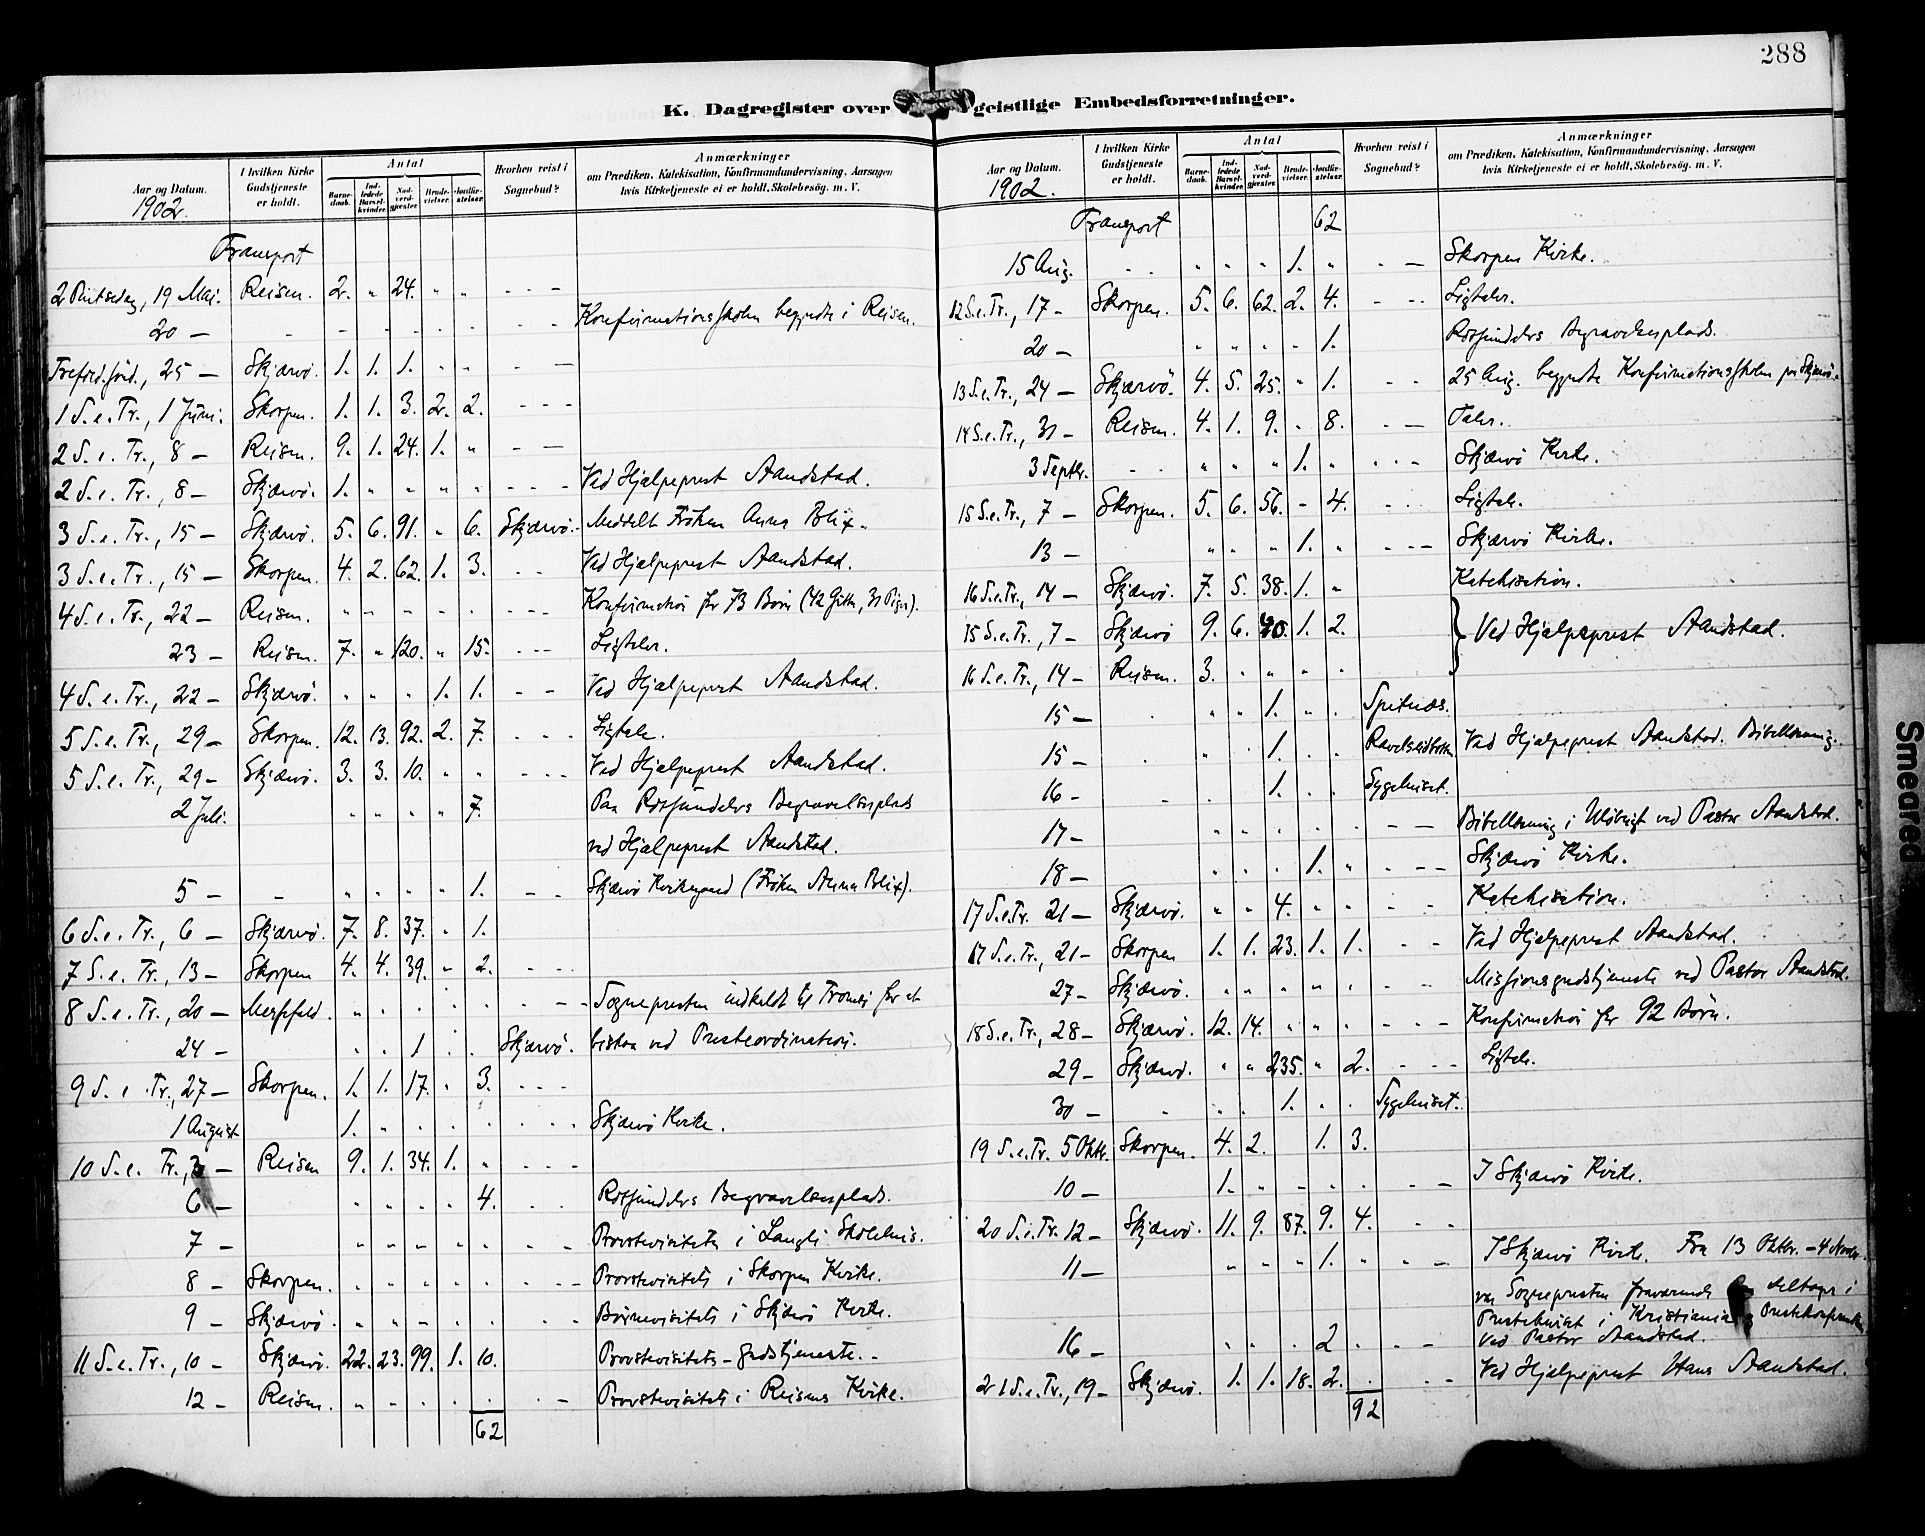 288
K. Dagregister over geistlige Embedsforretninger.
Aar og Datum. 1902. I hvilken Kirke Gudstjeneste er holdt. Antal Barnedaab. Indledede Barselkvinder. Nadverdgjester. Brudevielser. Jordfæstelser. Hvorhen reist i Sognebud? Anmærkninger om Prædiken, Katekisation, Konfirmandundervisning, Aarsagen hvis Kirketjeneste ei er holdt, Skolebesøg. m. V.
Transport
2 Pintsedag, 19 Mai. Reisen. 2. " 24. " " - - -
20 — - - - - - - - - - Konfirmationsskolen begyndte i Reisen.
25 — Skjærvø. 1. 1. 1. " " - —
1 S. e. Tr., 1 Juni. Skorpen. 1. 1. 3. 2. 2. - - -
2 S. e. Tr., 8 — Reisen. 9. 1. 24. 1. " - —
2 S. e. Tr., 8 — Skjærvø. 1. " " " " - - - Ved Hjælpeprest Aandstad.
3 S. e. Tr., 15 — Skjærvø. 5. 6. 91. " 6. Skjærvø. Meddelt Frøken Anna Blix.
3 S. e. Tr., 15 — Skorpen. 4. 2. 62. 1. 3. - - Ved Hjælpeprest Aandstad.
4 S. e. Tr., 22 — Reisen. " " " " " - - - Konfirmation for 73 Børn (42 Gutter, 31 Piger).
23 — Reisen. 7. " 120. " 15. - - - Ligtaler.
4 S. e. Tr., 22 — Skjærvø. " " " 1. 1. - - Ved Hjælpeprest Aandstad.
5 S. e. Tr., 29 — Skorpen. 12. 13. 92. 2. 7. - - - Ligtale.
5 S. e. Tr., 29 — Skjærvø. 3. 3. 10. " " - - - Ved Hjælpeprest Aandstad.
2 Juli. " " " " 7. Paa Rotsundelvs Begravelsesplads
ved Hjælpeprest Aandstad.
5 — - " " " " 1. - - Skjærvø Kirkegaard (Frøken Anna Blix).
6 S. e. Tr., 6 — Skjærvø. 7. 8. 37. " 1.
7 S. e. Tr., 13 — Skorpen 4. 4. 39. " 2. - - -
8 S. e. Tr., 20 — Messefald. " " " " " - - Sognepresten indkaldt til Tromsø for at
24 — " " 1 . . Skjærvø. bistaa ved Presteordination.
9 S. e. Tr., 27 — Skorpen. 1. 1. 17. " 3. - - -
1 August 1. " " " " - - - Skjærvø Kirke.
10 S. e. Tr., 3 — Reisen 9. 1. 34. 1. " - - -
6 — " " " " 4. - - Rotsundelvs Begravelsesplads.
7 — " " " " " - - Provstevisitats i Langli Skolehus.
8 — Skorpen. " " " " " - - - Provstevisitats i Skorpen Kirke.
9 — Skjærvø. " " " " " - - Børnevisitats i Skjærvø Kirke.
11 S. e. Tr., 10 — Skjærvø. 22. 23. 99. 1. 10. Provstevisitats-gudstjeneste.
12 — Reisen. " " " " " - - Provstevisitats i Reisens Kirke.
62
Aar og Datum. 1902. I hvilken Kirke Gudstjeneste er holdt. Antal Barnedaab. Indledede Barselkvinder. Nadverdgjester. Brudevielser. Jordfæstelser. Hvorhen reist i Sognebud? Anmærkninger om Prædiken, Katekisation, Konfirmandundervisning, Aarsagen hvis Kirketjeneste ei er holdt, Skolebesøg. m. V.
Transport 62
15 Aug. - - " " " 1. " - — Skorpen Kirke.
12 S. e. Tr., 17 — Skorpen. 5. 6. 62. 2. 4. - - - Ligtaler.
20 — " " " " 1. Rotsundelvs Begravelsesplads.
13 S. e. Tr., 24 — Skjærvø. 4. 5. 25. " 1. - - 25 Aug. begyndte Konfirmationsskolen paa Skjærvø.
14 S. e. Tr., 31 — Reisen. 4. 1. 9. " 8. - — Taler.
3 Septbr. - - " " " 1. " - - - Skjærvø Kirke.
15 S. e. Tr., 7 — Skorpen. 5. 6. 56. - 4. - - - Ligtale.
13 — " " " 1. " - - - Skjærvø Kirke.
16 S. e. Tr., 14 — Skjærvø. 7. 5. 38. 1. " Katekisation.
15 S. e. Tr., 7 — Skjærvø 9. 6. 40. 1. 2. } Ved Hjælpeprest Aandstad.
16 S. e. Tr., 14 — Reisen. 3. " " " "
15 — . " " 1. " . Spitnæs.
15 — . " 1. . . Ved Hjælpeprest Aandstad. Bibellæsning.
16 — . . 1. . . Sygehuset.
17 — " " " " " - — Bibellæsning i ved Pastor Aandstad.
18 — " " " 1. " - — Skjærvø Kirke.
17 S. e. Tr. 21 — Skjærvø. " " 4. " " - - Katekisation.
17 S. e. Tr., 21 — Skorpen 1. 1. 23. 1. 1. - - Ved Hjelpeprest Aandstad.
27 — Skjærvø. " " " " " - - Missionsgudstjeneste ved Pastor Aandstad.
18 S. e. Tr., 28 — Skjærvø. 12. 14. " " " - - - Konfirmation for 92 Børn.
29 — Skjærvø. " " 235. " 2. - - - Ligtale.
30 — . " . 1. " . Sygehuset.
19 S. e. Tr. 5 Oktbr. Skorpen. 4. 2. 1. 3.
10 — 1. " " " " - — I Skjærvø Kirke.
20 S. e. Tr. 12 — Skjærvø. 11. 9. 87. 9. 4. - -
11 — " " " 1. " - — I Skjærvø Kirke. Fra 13 Oktbr. – 4 Novbr.
var Sognepresten fraværende deltager i
i Kristiania Prestekonferentsen
16 — " " " 2 " - — Ved Pastor Aandstad.
21 S. e. Tr., 19 — Skjærvø. 1. 1. 18. 2. . - - Ved Hjælpeprest Hans Aandstad.
92
Smeared